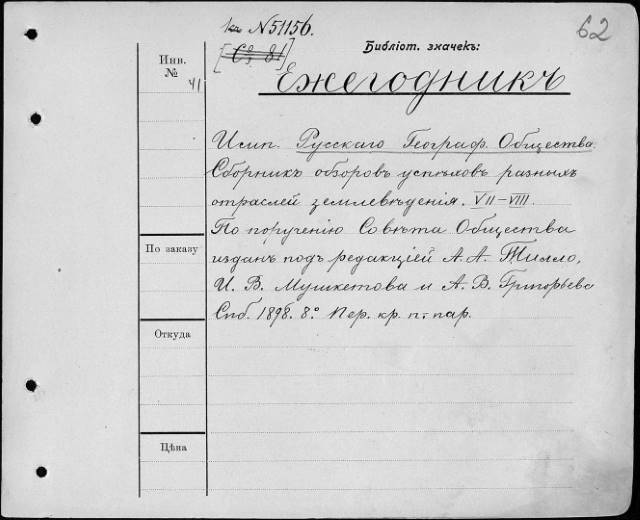 N 51156.
62
Библіот. значекъ:
Инв.
№
41
Ежегодникъ
Имп. Русскаго Географ. Общества.
Сборникъ обзоровъ успѣховъ разныхъ
отраслей землевѣдения. VII–VIII.
По порученію Совѣта Общества
изданъ подъ редакціей А. А. Тилло,
И. В. Мушкетова и А. В. Григорьева
Спб. 1898. 8.° Пер. кр. п. пар.
По заказу
Откуда
Цѣна